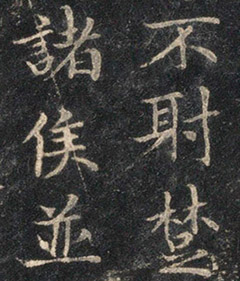 不射楚
諸侯並